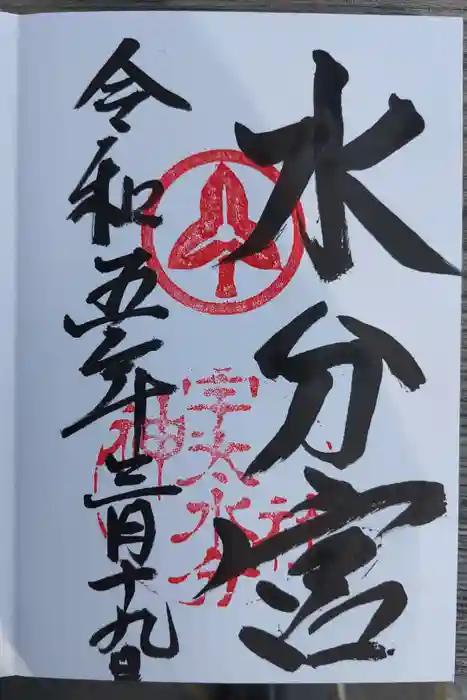 水分宮
宇太水分
神
社
令和五年三月十九日